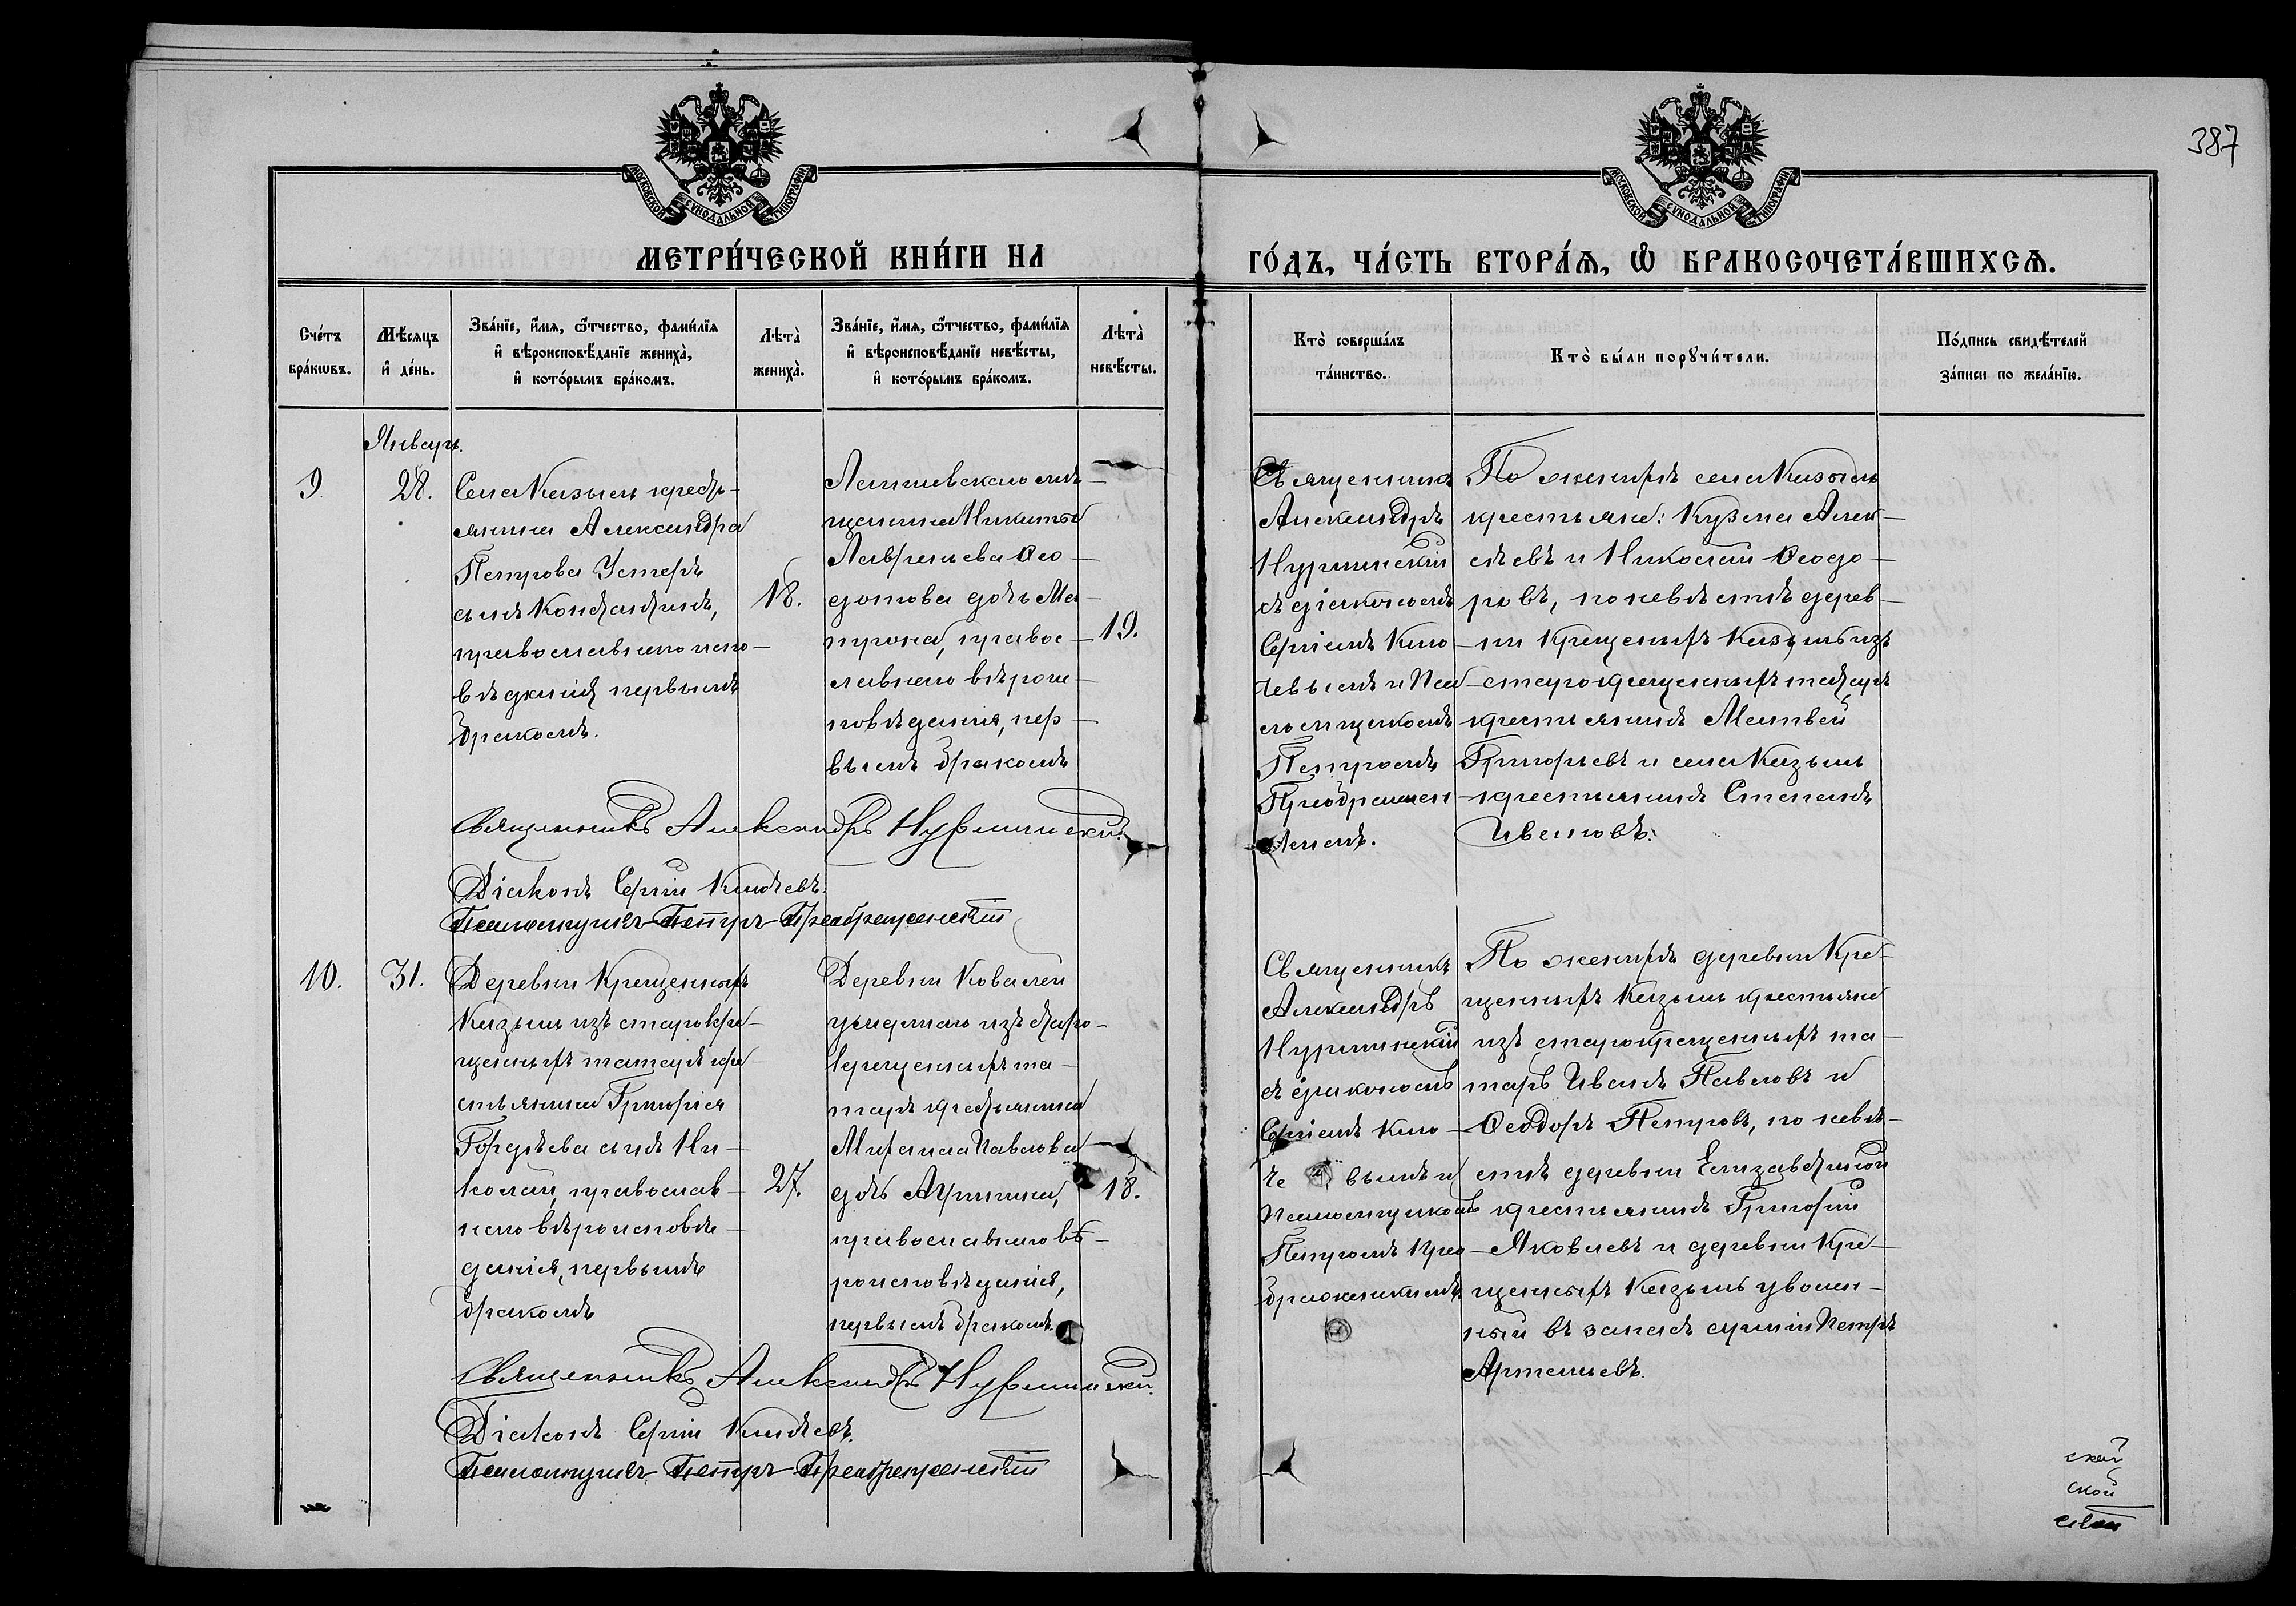 387
МОСКОВСКОЙ СУНОДАЛЬНОЙ ТИПОГРАФІИ
МОСКОВСКОЙ СУНОДАЛЬНОЙ ТИПОГРАФІИ
МЕТРИ́ЧЕСКОЙ КНИ́ГИ НА ГО́ДЪ, ЧА́СТЬ ВТОРА́Ѧ, Ѽ БРАКОСОЧЕТА́ВШИХСѦ.
Сче́тъ
бра́кѡвъ.
Мѣ́сяцъ
и҆ де́нь.
Зва́нїе, и҆́мя, ѻ҆́тчество, фами́лїя
и҆ вѣроисповѣ́данїе жениха̀,
и҆ кото́рымъ бра́комъ.
Лѣта̀
жениха̀.
Зва́нїе, и҆́мя, ѻ҆́тчество, фами́лїя
и҆ вѣроисповѣ́данїе невѣ́сты,
и҆ кото́рымъ бра́комъ.
Лѣта̀
невѣ́сты.
Кто̀ соверша́лъ
та́инство.
Кто̀ бы́ли порꙋчи́тели.
По́дпись свидѣ́телей
за́писи по жела́нїю.
Январь.
9.
28.
Села Казыли кресть-
янина Александра
Петрова
сынъ Константинъ,
православнаго испо-
вѣданія первымъ
бракомъ.
18.
Лаишевскаго мѣ-
щанина Никиты
Лаврентьева Ѳео-
дотова дочь Ма-
трона, правос-
лавнаго вѣроис-
повѣданія, пер-
вымъ бракомъ
19.
Священникъ
Александръ
Нурминскій
съ діакономъ
Сергіемъ Кин-
чевымъ и Пса-
ломщикомъ
Петромъ
Преображен
скимъ.
По женихѣ села Казыли
крестьяне: Кузьма Алек-
сѣевъ и Николай Ѳеодо-
ровъ, по невѣстѣ дерев-
ни Крещеныхъ Казыль изъ
старокрещенныхъ татаръ
крестьянинъ Матвей
Григорьевъ и села Казыли
крестьянинъ Степанъ
Ивановъ.
Священникъ Александръ Нурминскій.
Діаконъ Сергій Кинчевъ.
Псаломщикъ Петръ Преображенскій
10.
31.
Деревни Крещенныхъ
Казыли изъ старокре-
щенныхъ татаръ кре-
стьянина Григорія
Гордѣева сынъ Ни-
колай, православ-
наго вѣроисповѣ-
данія, первымъ
бракомъ
27.
Деревни Ковалей
умершаго изъ старо-
крещенныхъ та-
таръ крестьянина
Павлова
дочь
православнаго вѣ-
роисповѣданія,
первымъ бракомъ.
18.
Священникъ
Александръ
Нурминскій
съ діакономъ
Сергіемъ Кин-
че вымъ и
псаломщикомъ
Петромъ Прео-
браженскимъ.
По женихѣ деревни Кре-
щенныхъ Казыли крестьяне
изъ старокрещенныхъ та-
таръ Иванъ Павловъ и
Ѳеодоръ Петровъ, по невѣ-
стѣ деревни Елизаветиной
крестьянинъ Григорій
Яковлевъ и деревни Кре-
щенныхъ Казыль уволен-
ный въ запасъ арміи Петръ
Артемьевъ.
Священникъ Александръ Нурминскій.
Діаконъ Сергій Кинчевъ.
Псаломщикъ Петръ Преображенскій
ской
ской